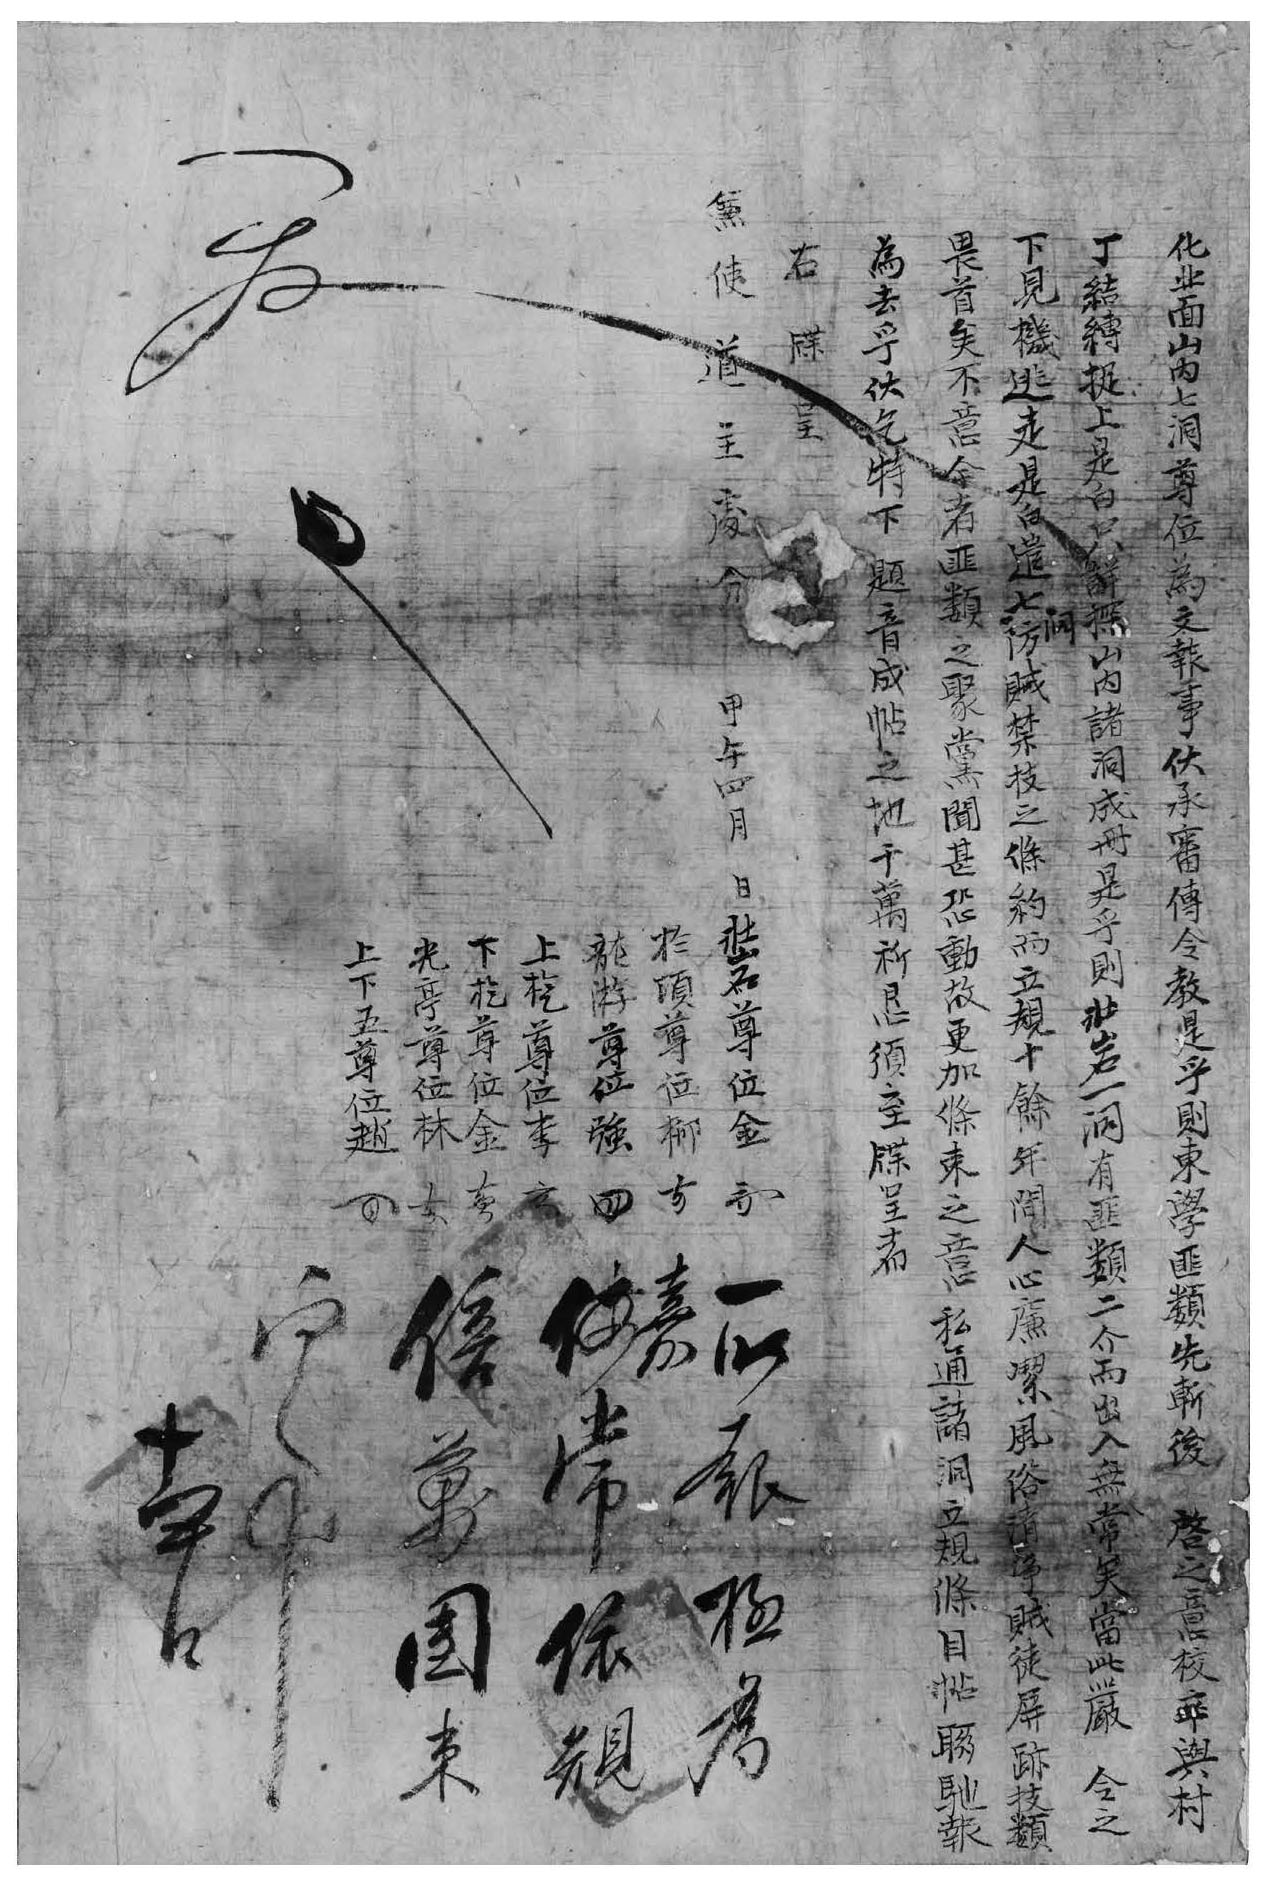 化北面山內七洞尊位為文報事伏承審傳令教是乎則東學匪類先斬後 啓之意校卒與村
丁結縛捉上是白只詳探山內諸洞成冊是乎則壯岩一洞有匪類二介而出入無常矣當此嚴 令之
下見機逃走是白遣七洞防賊禁技之條約而立規十餘年間人心廉潔風俗清淨賊徒屏跡技類
畏首矣不意今者匪類之聚黨聞甚恐動故更加條束之意私通諸洞立規條目帖聯馳報
為去乎伏乞特下 題音成帖之地千萬祈恳須至牒呈者
右牒呈
兼使道主處分
甲午四月 日 壯岩尊位金
於項尊位柳
龍游尊位強
上杺尊位李
下杺尊位金
光亭尊位林
上下五尊位趙
一依報極為
嘉
尚依規
信萬團束
十四日